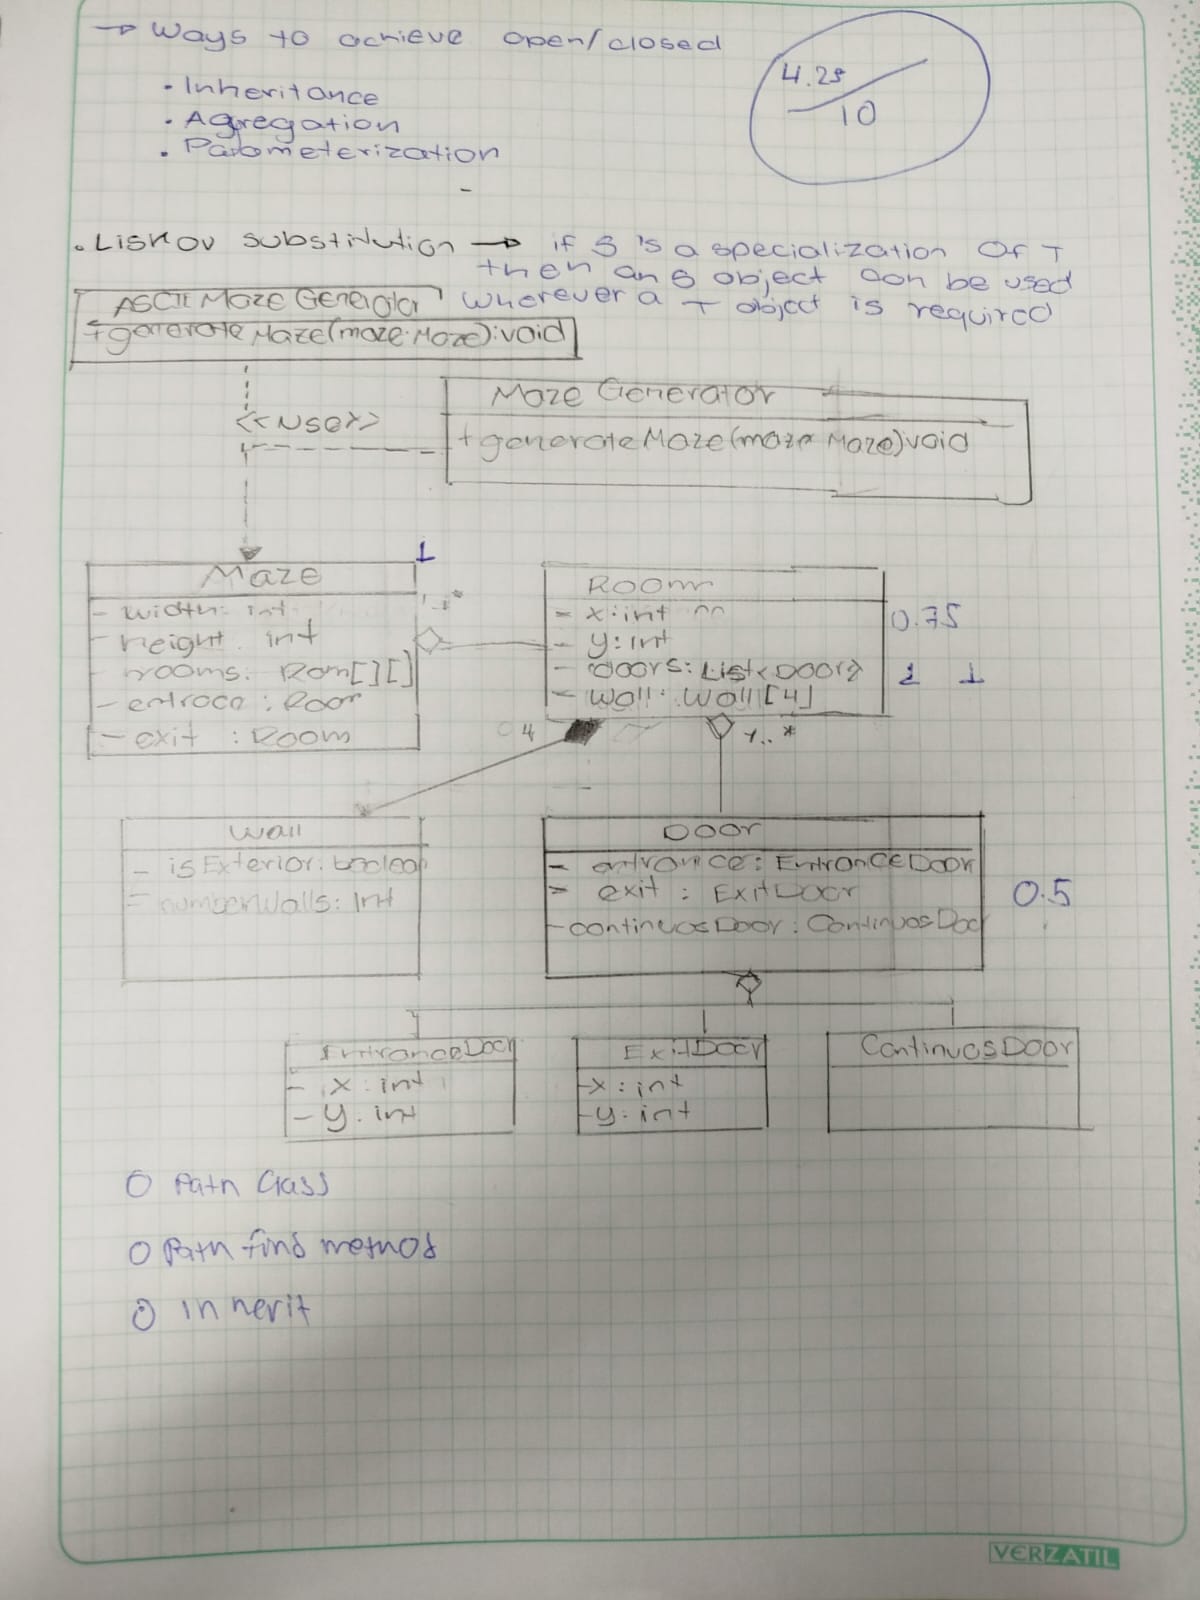 → Ways to achieve open/closed
4.25
10
• Inheritance
• Aggregation
• Parameterization
• Liskov substitution → if S is a specialization of T
then an S object can be used
wherever a T object is required
ASCII Maze Generator
+generateMaze(maze:Maze):void
<<Use>>
Maze Generator
+generateMaze(maze Maze)void
1
Maze
- width: int
- height: int
- rooms: Rom[][]
- entroce : Room
- exit : Room
1..*
Room
- x:int
- y:int
- doors: List<Door>
- Wall: Wall[4]
0.75
1 1
4
1..*
Wall
- isExterior: boolean
- numberWalls: Int
Door
- entrance: EntranceDoor
- exit : ExitDoor
- continuosDoor: ContinuosDoo
0.5
EntranceDoor
- x: int
- y: int
ExitDoor
- x: int
- y: int
ContinuosDoor
O Path Class
O Path find method
O inherit
VERZATIL